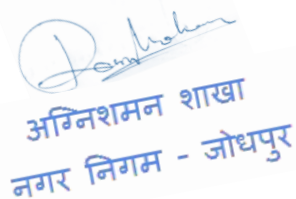 अग्निशमन शाखा
नगर निगम - जोधपुर